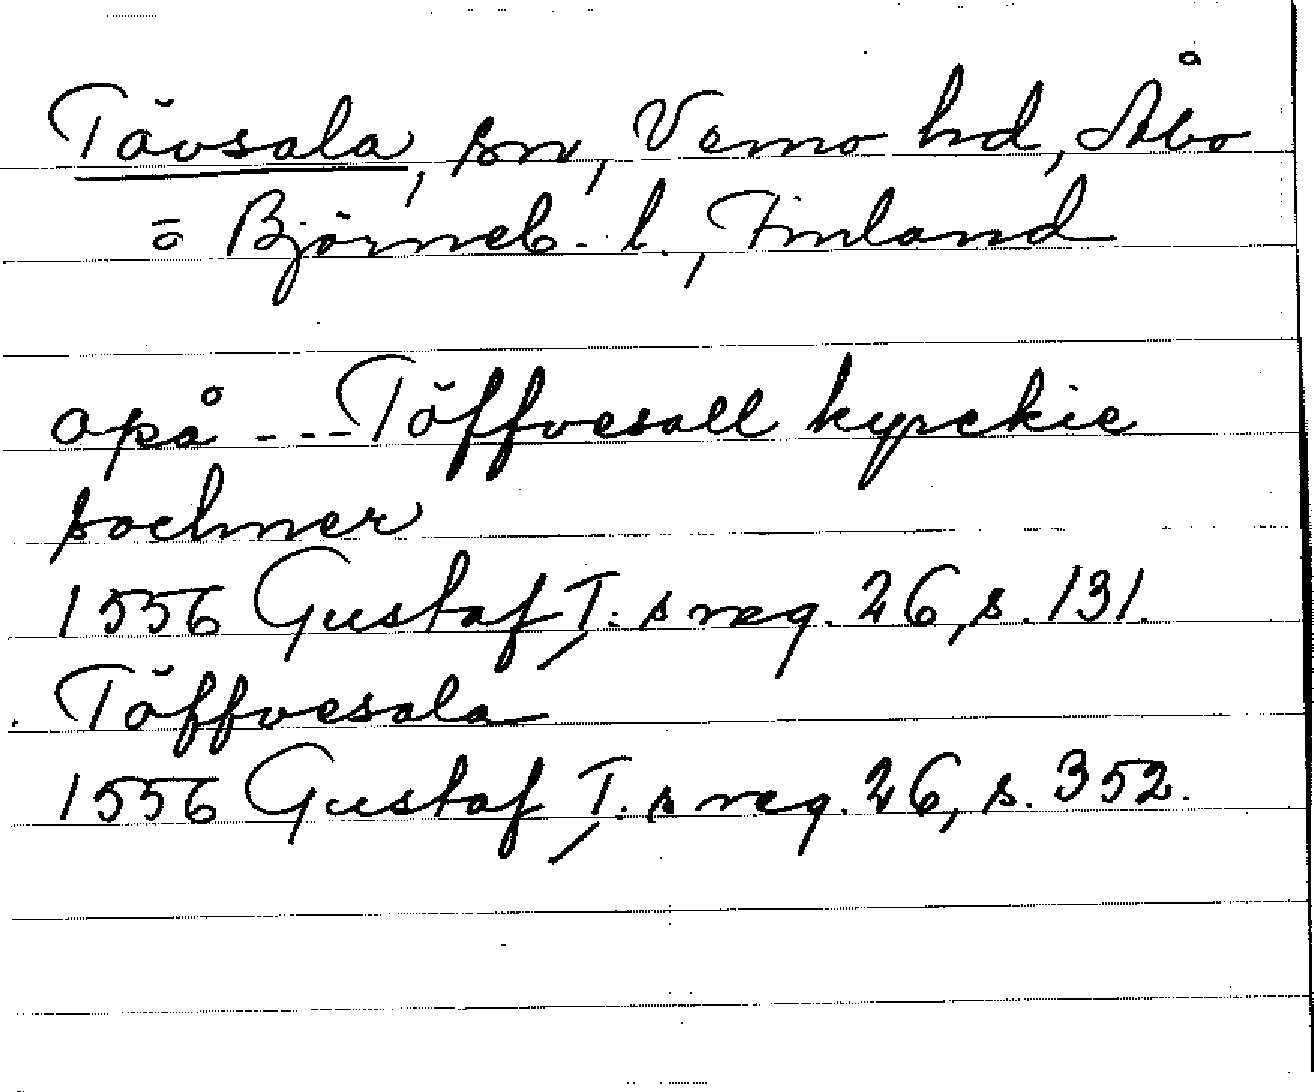 Tövsala, sn, Vemo hd, Åbo
o Björneb. l., Finland
opå --- Töffvesall kyrckie
sochner
1556 Gustaf I:s reg. 26, s. 131.
Töffvesala
1556 Gustaf I:s reg. 26, s. 352.